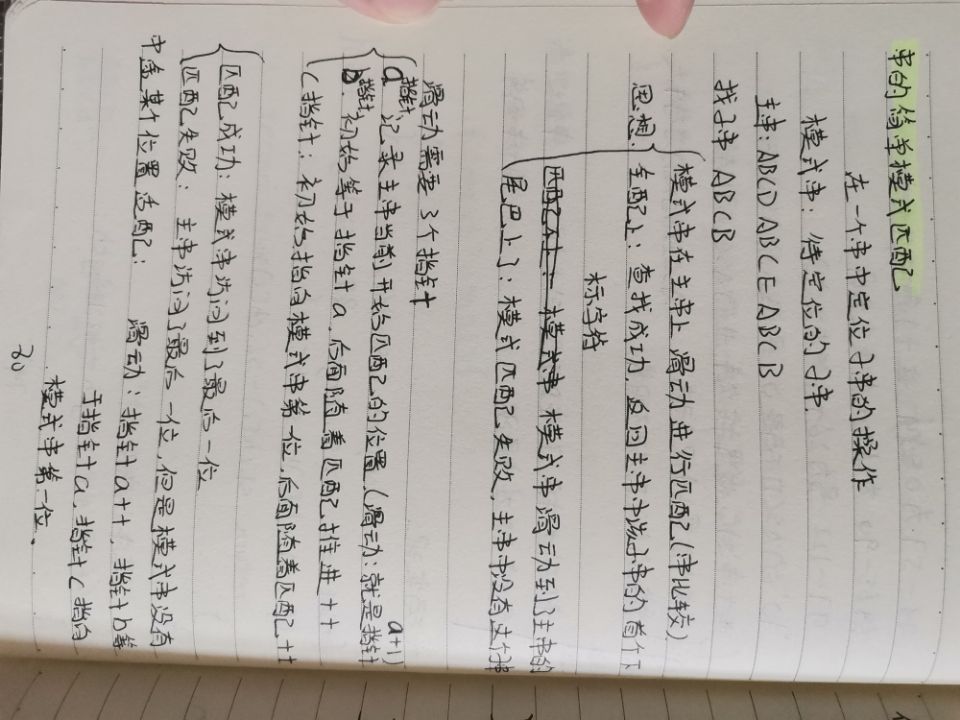 串的简单模式匹配
在一个串中定位子串的操作
模式串：待定位的子串.
主串：ABCDABCEABCB
找子串 ABCB
思想：
模式串在主串上滑动进行匹配(串比较)
全匹配上：查找成功,返回主串中该子串的首个下
标字符
匹配不上：模式串 模式串滑动到了主串的
尾巴上了：模式匹配失败,主串中没有这个串
滑动需要 3个指针
a指针：记录主串当前开始匹配的位置(滑动：就是指针a+1)
b指针：初始等于指针a,后面随着匹配推进++
c指针：初始指向模式串第一位,后面随着匹配++
匹配成功：模式串访问到了最后一位
匹配失败：主串访问了最后一位,但是模式串没有
中途某个位置适配：滑动：指针a++,指针b等
于指针a,指针c指向
模式串第一位.
30